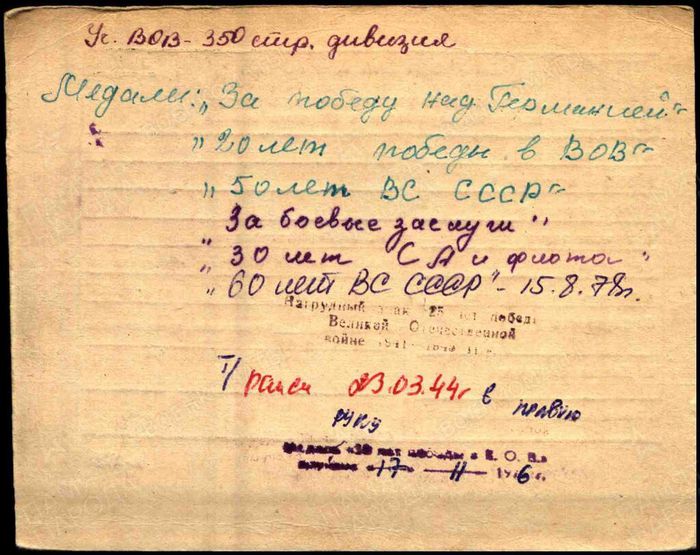 Уч. ВОВ - 350 стр. дивизия
Медали: „За победу над Германией"
„20 лет победы в ВОВ"
„50 лет ВС СССР"
„За боевые заслуги"
„30 лет СА и флота"
„60 лет ВС СССР" - 15.8.78г.
Нагрудный знак 25 лет победы
Великой Отечественной
войне 1941-1945 г.г.
Т/ранен 23.03.44г в правую
руку
медаль «30 лет победы в В. О. В.»
«17» 11 1976.